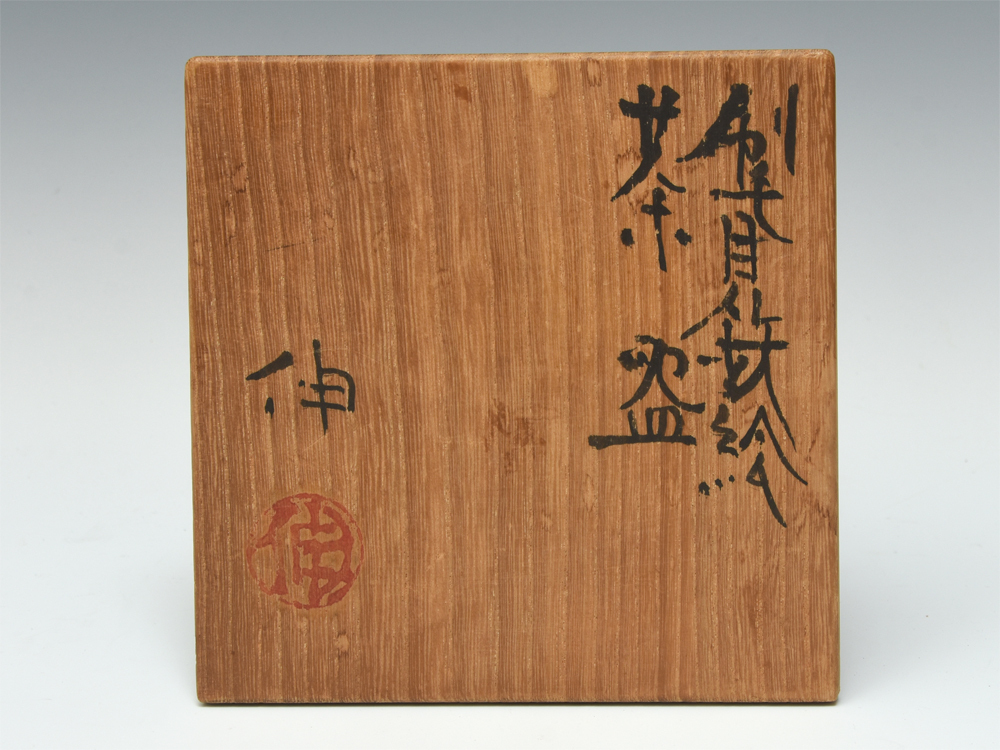 刷毛目鐵絵
茶盌
伸
伸